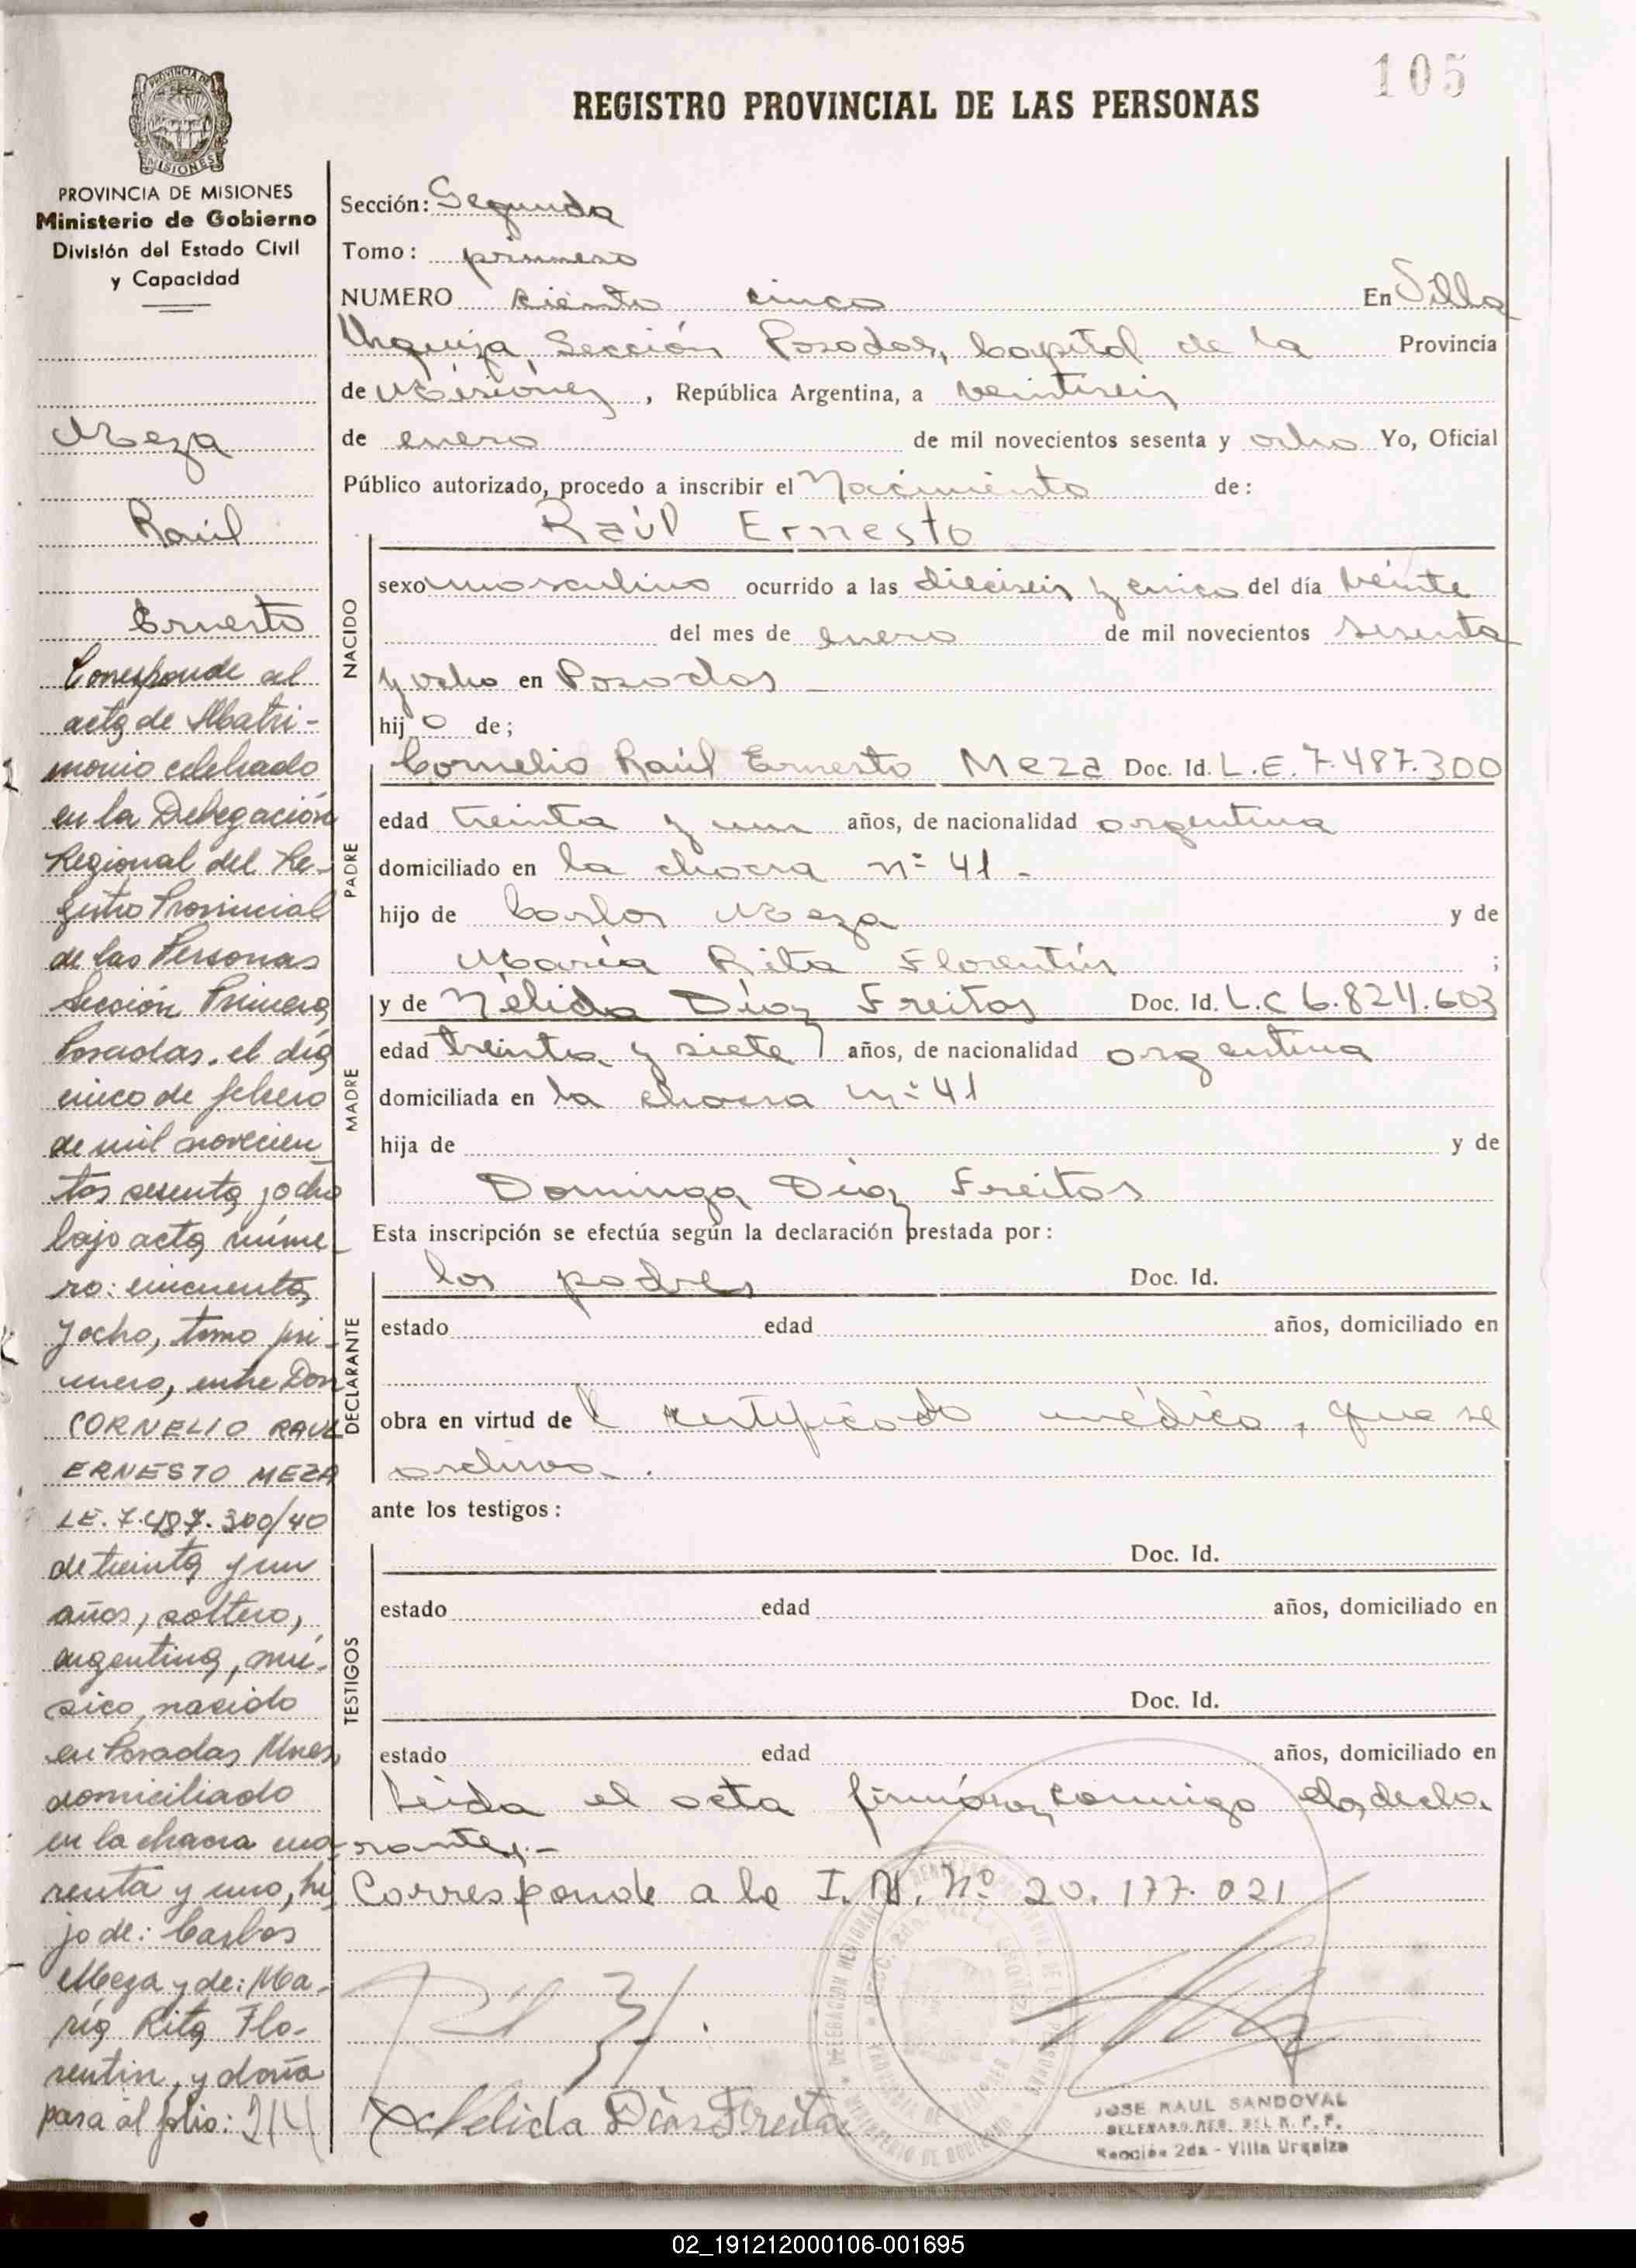 105
REGISTRO PROVINCIAL DE LAS PERSONAS
PROVINCIA DE MISIONES
MISIONES
PROVINCIA DE MISIONES
Ministerio de Gobierno
División del Estado Civil
y Capacidad
Meza
Raúl
Ernesto
Corresponde al
acta de Matri-
monio celebrado
en la Delegación
Regional del Re-
gistro Provincial
de las Personas
Sección Primera
Posadas, el día
cinco de febrero
de mil novecien
tos sesenta y ocho
bajo acta núme-
ro: cincuenta
y ocho, tomo pri-
mero, entre Don
CORNELIO RAUL
ERNESTO MEZA
LE. 7.487.300/40
de treinta y un
años, soltero,
argentino, mú-
sico, nacido
en Posadas Mnes,
domiciliado
en la chacra cua
renta y uno, hi
jo de: Carlos
Meza y de: Ma-
ría Rita Flo-
rentin, y doña
pasa al folio: 214
Sección: Segunda
Tomo: primero
NUMERO ciento cinco En Villa
Urquiza, Sección Posadas, Capital de la Provincia
de Misiones, República Argentina, a veintiseis
de enero de mil novecientos sesenta y ocho Yo, Oficial
Público autorizado, procedo a inscribir el Nacimiento de:
Raúl Ernesto
NACIDO
sexo masculino ocurrido a las dieciseis y cinco del día veinte
del mes de enero de mil novecientos sesenta
y ocho en Posadas
hijo de;
PADRE
Cornelio Raúl Ernesto Meza Doc. Id. L.E. 7.487.300
edad treinta y un años, de nacionalidad argentina
domiciliado en la chacra nº 41.
hijo de Carlos Meza y de
María Rita Florentín ;
MADRE
y de Nélida Díaz Freitas Doc. Id. L.C 6.824.603
edad treinta y siete años, de nacionalidad argentina
domiciliada en la chacra nº 41
hija de y de
Dominga Díaz Freitas
Esta inscripción se efectúa según la declaración prestada por:
DECLARANTE
los padres Doc. Id.
estado edad años, domiciliado en
obra en virtud del certificado médico, que se
archiva.
ante los testigos:
TESTIGOS
Doc. Id.
estado edad años, domiciliado en
Doc. Id.
estado edad años, domiciliado en
Leida el acta firman conmigo los decla
rantes.-
Corresponde a la I. N. Nº 20.177.021
Nelida Dias Freita
JOSE RAUL SANDOVAL
DELEGADO REG. DEL R. P. P.
Sección 2da - Villa Urquiza
02_191212000106-001695